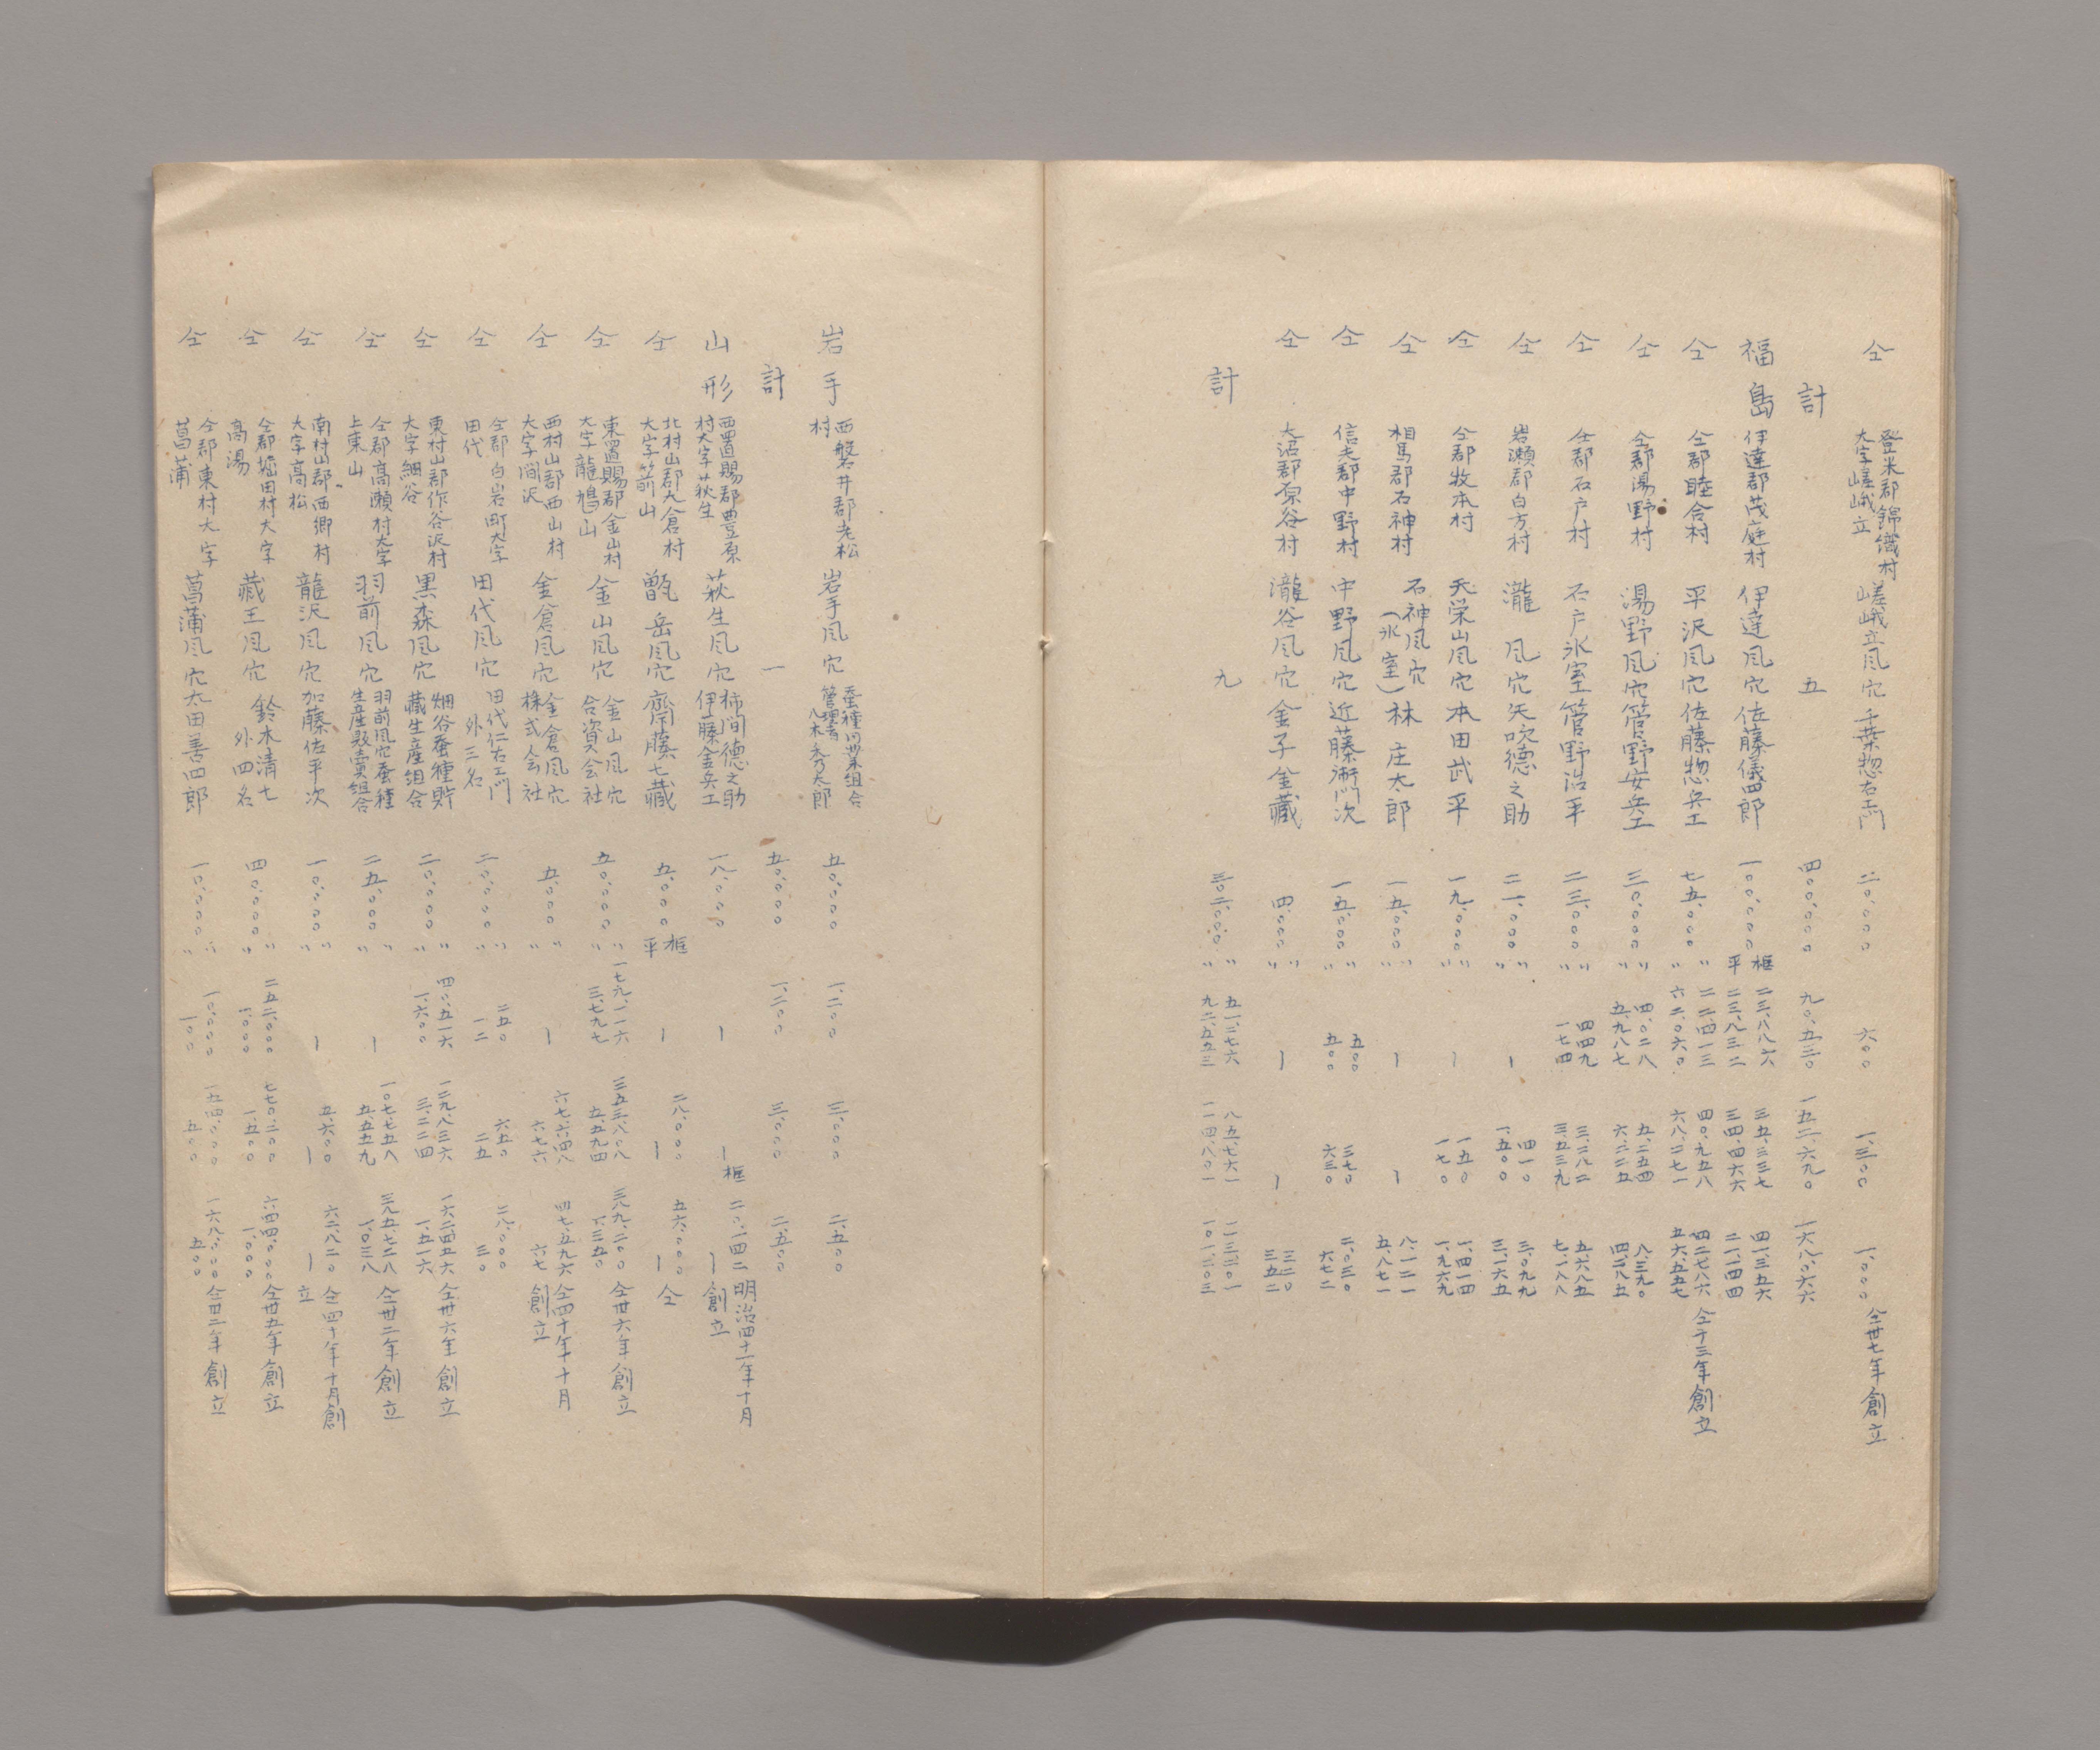 仝 登米郡錦織村大字嵯峨立 嵯峨立風穴 千葉惣右エ門 二〇、〇〇〇 六〇〇 一、三〇〇 一、〇〇〇 仝卅七年創立
計 五 四〇〇、〇〇〇 九〇、五三〇 一五二、六九〇 一六八、〇六六
福島 伊達郡茂庭村 伊達風穴 佐藤儀四郎 一〇〇、〇〇〇 框 二三、八八六 三五、三三七 四一、三五六
平 二三、八三二 三四、四六六 二一、一四四
仝 仝郡睦合村 平沢風穴 佐藤惣兵エ 七五、〇〇〇 〃 二二、四一三 四〇、九五八 四二、七八六 仝十三年創立
〃 六二、〇六〇 六八、二七一 五六、五五七
仝 仝郡湯野村 湯野風穴 管野安兵エ 三〇、〇〇〇 〃 四、〇二八 五、二五四 八、三九〇
〃 五、九八七 六、二二五
仝 仝郡石戸村 石戸氷室 管野浩平 二三、〇〇〇 〃 四四九 三、二八二 五、六八五
〃 一七四 三、五三九 七、一八八
仝 岩瀬郡白方村 瀧風穴 矢吹德之助 二一、〇〇〇 〃 ー 四一〇 三、〇九九
〃 一、五〇〇 三、一六五
仝 仝郡牧本村 天栄山風穴 本田武平 一九、〇〇〇 〃 ー 一五〇 一、四一四
〃 一七〇 一、九六九
仝 相馬郡石神村 石神風穴(氷室) 林庄太郎 一五、〇〇〇 〃 ー ー 八、一二一
〃 五、八七一
仝 信夫郡中野村 中野風穴 近藤衛門次 一五、〇〇〇 〃 五〇〇 三七〇 二、〇三〇
〃 五〇〇 六三〇 六七二
仝 大沼郡原谷村 瀧谷風穴 金子金藏 四、〇〇〇 〃 ー ー 三二〇
〃 三五二
計 九 三〇二、〇〇〇 〃 五一、二七六 八五、七六一 一一三、二〇一
〃 九二、五五三 一一四、八〇一 一〇一、二〇三
岩手 西磐井郡老松村 岩手風穴 蚕種同業組合管理者八木秀太郎 五〇、〇〇〇 一、二〇〇 三、〇〇〇 二、五〇〇
計 一 五〇、〇〇〇 一、二〇〇 三、〇〇〇 二、五〇〇
山形 西置賜郡豊原村大字萩生 萩生風穴 柿間德之助 伊藤金兵エ 一八、〇〇〇 ー ー 框 二〇、一四二 ー 明治四十一年十月創立
仝 北村山郡大倉村大字箭山 甑岳風穴 齋藤七藏 五、〇〇〇 框 平 ー 二八、〇〇〇 ー 五六、〇〇〇 ー 仝
仝 東置賜郡金山村大字龍鳩山 金山風穴 金山風穴合資会社 五〇、〇〇〇 〃 一七九、一一六 三五三、八〇八 三九九、二〇〇 仝卅六年創立
〃 三、七九七 五、五九四 六、三五〇
仝 西村山郡西山村大字間沢 金倉風穴 金倉風穴株式会社 五、〇〇〇 〃 ー 六七、六四八 四七、五九六 仝四十年十月創立
〃 六七六 六七
仝 仝郡白岩町大字田代 田代風穴 田代仁右エ門外三名 二〇、〇〇〇 〃 二五〇 六五〇 二八、〇〇〇
〃 一二 二五 三〇
仝 東村山郡作谷沢村大字細谷 黒森風穴 畑谷蚕種貯藏生産組合 二〇、〇〇〇 〃 四〇、五一六 二九、八三六 一六二、四五六 仝卅六年創立
〃 一、六〇〇 三、二二四 一、五一六
仝 仝郡高瀬村大字上東山 羽前風穴 羽前風穴蚕種生産販賣組合 二五、〇〇〇 〃 ー 一〇七、七五八 三九五、七二八 仝卅二年創立
〃 五、五五九 一、〇三八
仝 南村山郡西郷村大字高松 龍沢風穴 加藤佐平次 一〇、〇〇〇 〃 ー 五、六〇〇 六二、八二〇 仝四十年十月創立
〃 ー ー
仝 仝郡堀田村大字高湯 藏王風穴 鈴木清七外四名 四〇、〇〇〇 〃 二五二、〇〇〇 七七〇、二〇〇 六四四、〇〇〇 仝卅五年創立
〃 一、〇〇〇 一、五〇〇 一、〇〇〇
仝 仝郡東村大字菖蒲 菖蒲風穴 太田善四郎 一〇、〇〇〇 〃 一〇、〇〇〇 一五四、〇〇〇 一六八、〇〇〇 仝卅二年創立
〃 一〇〇 五〇〇 五〇〇